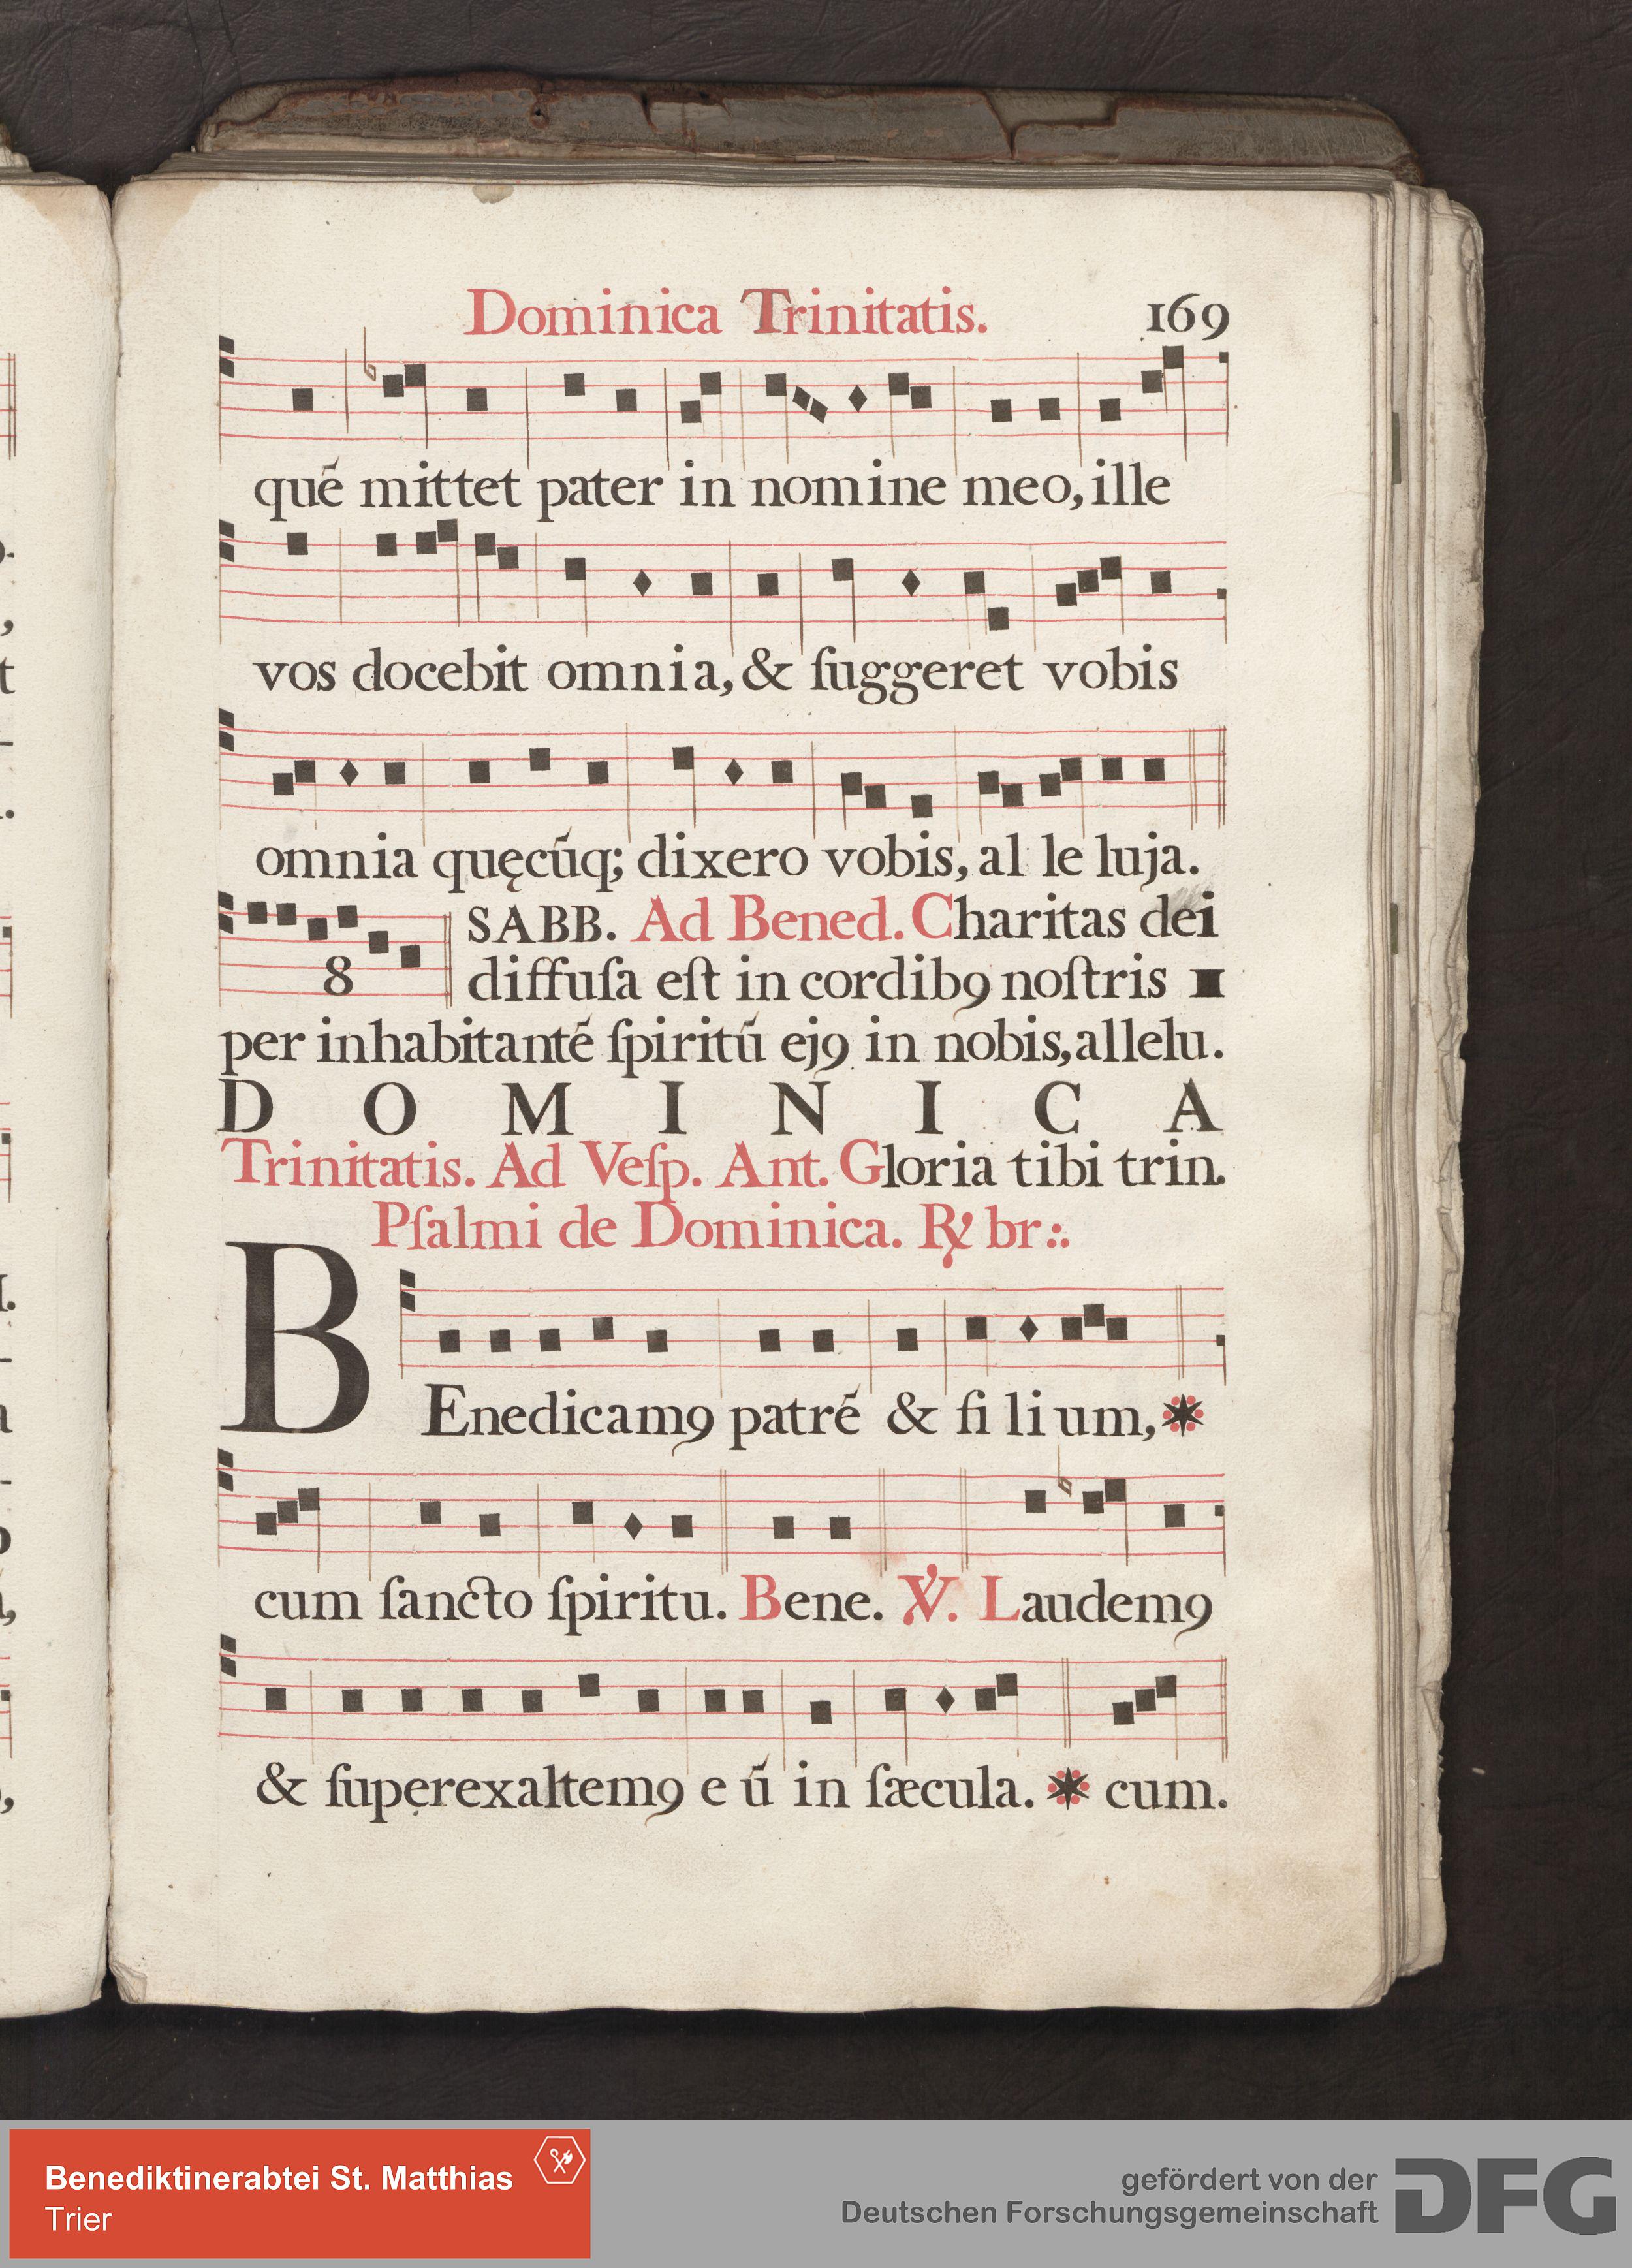 Dominica Trinitatis. 169
qué mittet pater in nomine meo, ille
vos docebit omnia, & ſuggeret vobis
omnia quęcūq; dixero vobis, al le luja.
SABB. Ad Bened. Charitas dei
8 diffuſa eſt in cordibꝰ noſtris
per inhabitanté ſpiritū ejꝰ in nobis, allelu.
DOMINICA
Trinitatis. Ad Veſp. Ant. Gloria tibi trin.
Pſalmi de Dominica. ℟ br.
BEnedicamꝰ patré & fi li um, *
cum ſancto ſpiritu. Bene. ℣. Laudemꝰ
& ſuperexaltemꝰ e ū in ſæcula. * cum.
Benediktinerabtei St. Matthias
Trier
gefördert von der
Deutschen Forschungsgemeinschaft
DFG